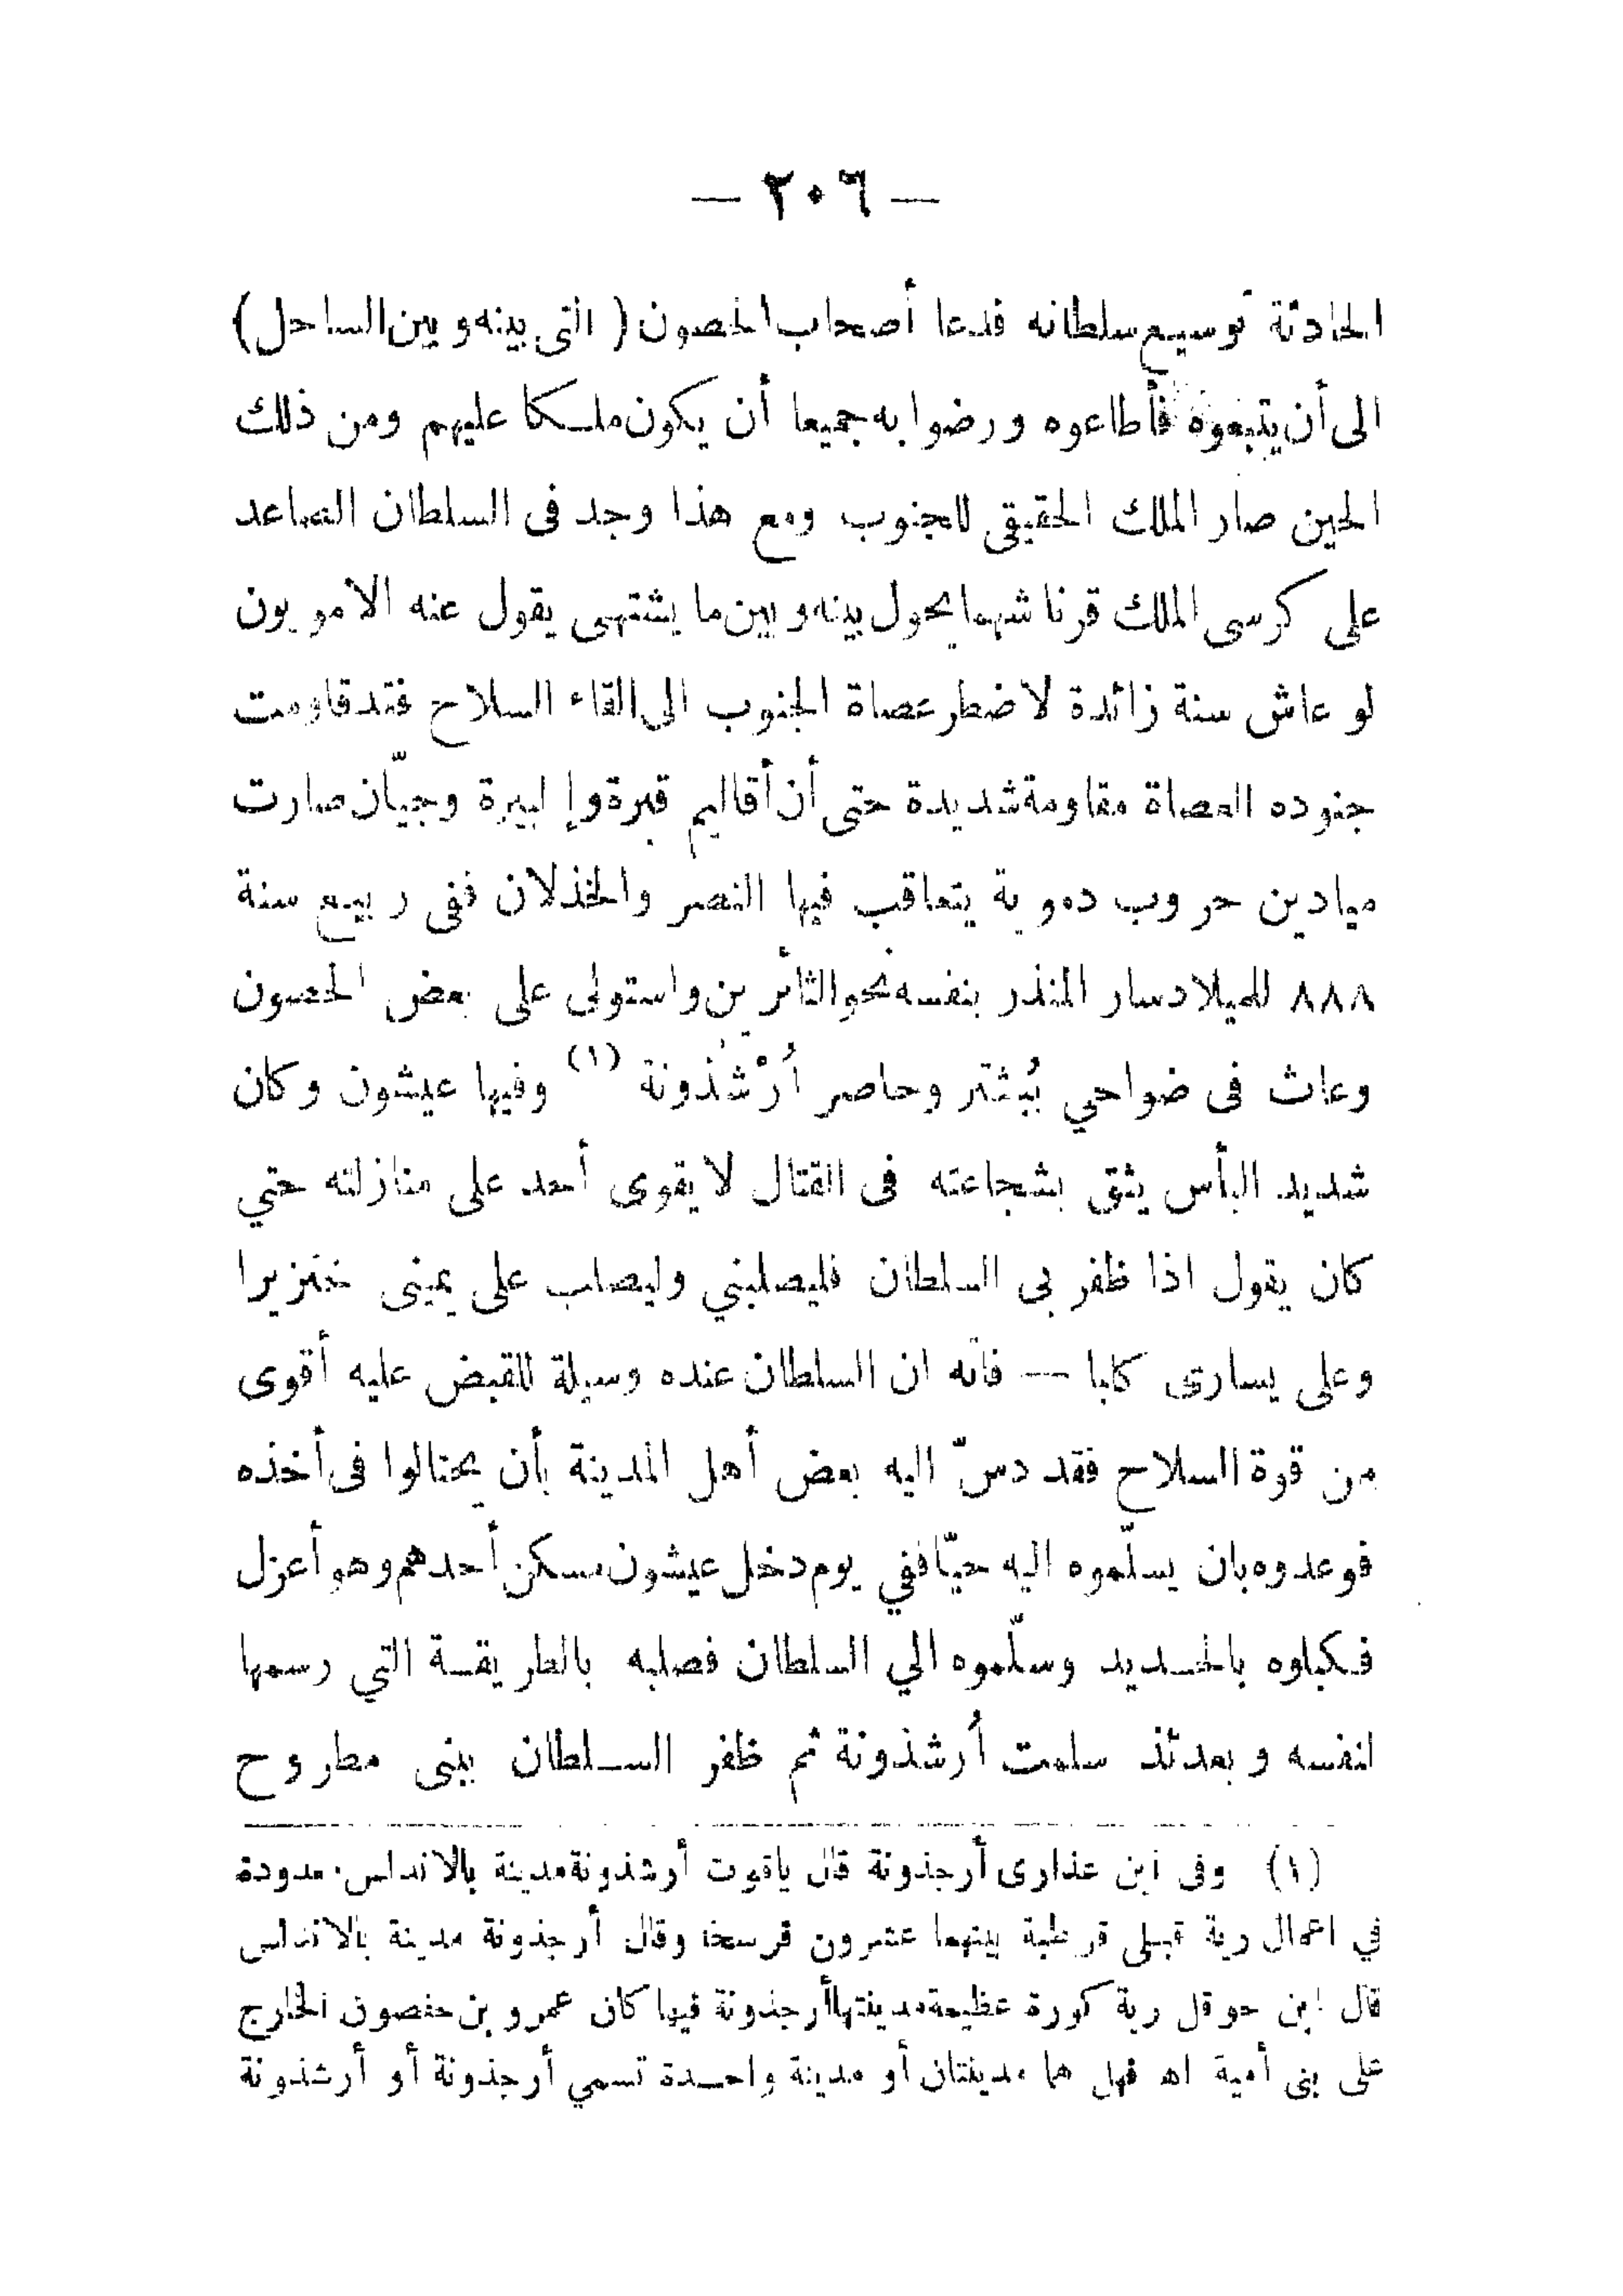 — ٢٠٦ —
الحادثة توسيع سلطانه فدعا أصحاب الحصون ( التى بينه وبين الساحل )
الى أن يتبعوه فأطاعوه ورضوا به جميعا أن يكون ملكا عليهم ومن ذلك
الحين صار الملك الحقيقى للجنوب ومع هذا وجد فى السلطان الصاعد
على كرسى الملك قرنا شهما يحول بينه وبين ما يشتهى يقول عنه الامويون
لو عاش سنة زائدة لاضطر عصاة الجنوب الى القاء السلاح فقد قاومت
جنوده العصاة مقاومة شديدة حتى أن أقاليم قبرة وإلبيرة وجيّان صارت
ميادين حروب دموية يتعاقب فيها النصر والخذلان ففى ربيع سنة
٨٨٨ للميلاد سار المنذر بنفسه نحو الثائرين واستولى على بعض الحصون
وعاث فى ضواحي بُبَشْتر وحاصر أُرْشُذونة (١) وفيها عيشون وكان
شديد البأس يثق بشجاعته فى القتال لا يقوى أحد على منازلته حتي
كان يقول اذا ظفر بى السلطان فليصلبني وليصلب على يمينى خنزيرا
وعلى يسارى كلبا — فاته ان السلطان عنده وسيلة للقبض عليه أقوى
من قوة السلاح فقد دسّ اليه بعض أهل المدينة بأن يحتالوا فى أخذه
فوعدوه بان يسلّموه اليه حيّا ففي يوم دخل عيشون مسكن أحدهم وهو أعزل
فكبلوه بالحديد وسلّموه الي السلطان فصلبه بالطريقة التي رسمها
لنفسه وبعدئذ سلمت أُرشذونة ثم ظفر السلطان ببنى مطروح
(١) وفى ابن عذارى أرجذونة قال ياقوت أرشذونة مدينة بالاندلس معدودة
في اعمال رية قبلى قرطبة بينهما عشرون فرسخا وقال أرجذونة مدينة بالاندلس
قال ابن حوقل رية كورة عظيمة مدينتها أرجذونة فيها كان عمرو بن حفصون الخارج
على بنى أمية اه فهل هما مدينتان أو مدينة واحدة تسمي أرجذونة أو أرشذونة